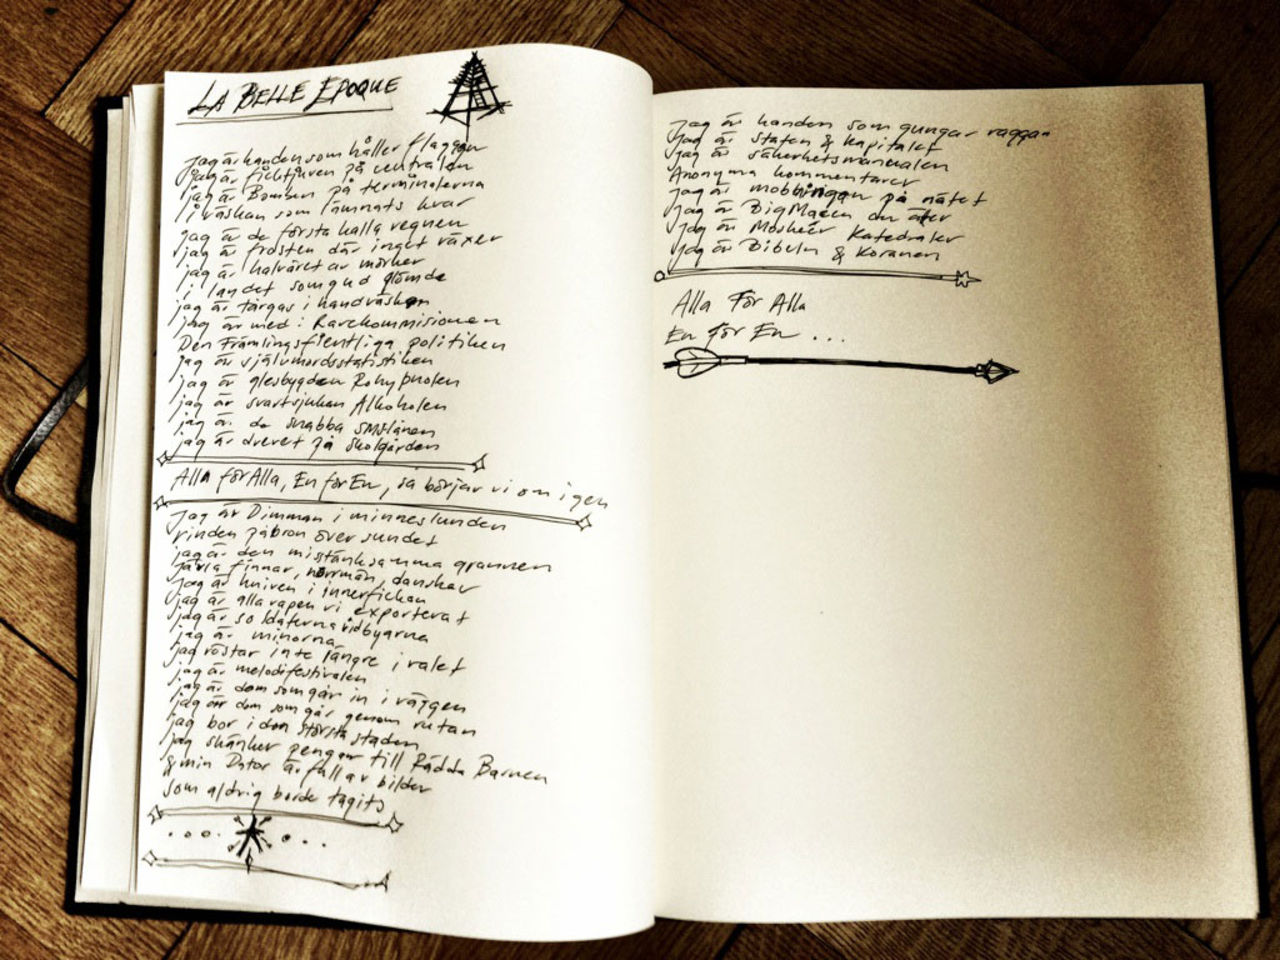 LA BELLE EPOQUE
jag är handen som håller flaggan
jag är ficktjuven på centralen
jag är Bomben på terminalerna
i väskan som lämnats kvar
jag är de första kalla regnen
jag är frosten där inget växer
jag är halvåret av mörker
i landet som gud glömde
jag är tårgas i handväskan
jag är med i Ravekommisionen
Den Främlingsfientliga politiken
jag är självmordsstatistiken
jag är glesbygden Rohypnolen
jag är svartsjukan Alkoholen
jag är de snabba SMSlånen
jag är drevet på skolgården
Alla för Alla, En för En, så börjar vi om igen
Jag är Dimman i minneslunden
vinden på bron över sundet
jag är den misstänksamma grannen
Jävla finnar, norrmän, danskar
jag är kniven i innerfickan
jag är alla vapen vi exporterat
jag är soldaterna vid byarna
jag är minorna
jag röstar inte längre i valet
jag är melodifestivalen
jag är dom som går in i väggen
jag är dom som går genom rutan
jag bor i den största staden
jag skänker pengar till Rädda Barnen
& min Dator är full av bilder
som aldrig borde tagits
Jag är handen som gungar vaggan
Jag är Staten & Kapitalet
Jag är säkerhetsmanualen
Anonyma kommentarer
Jag är mobbningen på nätet
Jag är BigMacen du äter
Jag är Moskéer Katedraler
Jag är Bibeln & Koranen
Alla För Alla
En för En ...